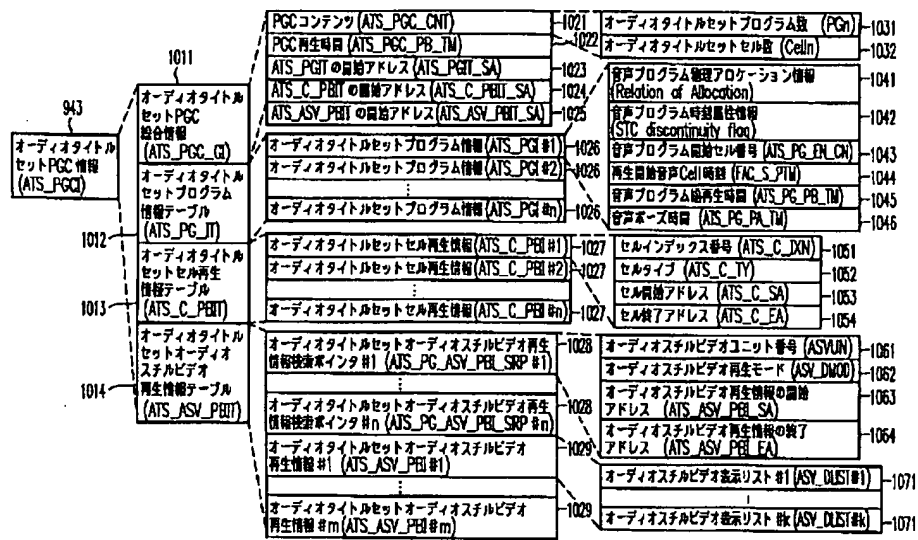 943
オーディオタイトル
セットPGC 情報
(ATS_PGCI)
1011
オーディオタイトル
セットPGC
総合情報
(ATS_PGC_GI)
オーディオタイトル
セットプログラム
情報テーブル
(ATS_PG_IT)
1012
オーディオタイトル
セットセル再生
情報テーブル
(ATS_C_PBIT)
1013
オーディオタイトル
セットオーディオ
スチルビデオ
再生情報テーブル
(ATS_ASV_PBIT)
1014
PGCコンテンツ (ATS_PGC_CNT)
1021
PGC再生時間 (ATS_PGC_PB_TM)
1022
ATS_PGITの開始アドレス (ATS_PGIT_SA)
1023
ATS_C_PBITの開始アドレス (ATS_C_PBIT_SA)
1024
ATS_ASV_PBITの開始アドレス (ATS_ASV_PBIT_SA)
1025
オーディオタイトルセットプログラム情報 (ATS_PGI #1)
1026
オーディオタイトルセットプログラム情報 (ATS_PGI #2)
1026
オーディオタイトルセットプログラム情報 (ATS_PGI #n)
1026
オーディオタイトルセットセル再生情報 (ATS_C_PBI #1)
1027
オーディオタイトルセットセル再生情報 (ATS_C_PBI #2)
1027
オーディオタイトルセットセル再生情報 (ATS_C_PBI #n)
1027
オーディオタイトルセットオーディオスチルビデオ再生
情報検索ポインタ #1 (ATS_PG_ASV_PBI_SRP #1)
1028
オーディオタイトルセットオーディオスチルビデオ再生
情報検索ポインタ #n (ATS_PG_ASV_PBI_SRP #n)
1028
オーディオタイトルセットオーディオスチルビデオ
再生情報 #1 (ATS_ASV_PBI #1)
1029
オーディオタイトルセットオーディオスチルビデオ
再生情報 #m (ATS_ASV_PBI #m)
1029
オーディオタイトルセットプログラム数 (PGn)
1031
オーディオタイトルセットセル数 (Celln)
1032
音声プログラム物理アロケーション情報
(Relation of Allocation)
1041
音声プログラム時刻属性情報
(STC discontinuity flag)
1042
音声プログラム開始セル番号 (ATS_PG_EN_CN)
1043
再生開始音声Cell時刻 (FAC_S_PTM)
1044
音声プログラム総再生時間 (ATS_PG_PB_TM)
1045
音声ポーズ時間 (ATS_PG_PA_TM)
1046
セルインデックス番号 (ATS_C_IXN)
1051
セルタイプ (ATS_C_TY)
1052
セル開始アドレス (ATS_C_SA)
1053
セル終了アドレス (ATS_C_EA)
1054
オーディオスチルビデオユニット番号 (ASVUN)
1061
オーディオスチルビデオ再生モード (ASV_DMOD)
1062
オーディオスチルビデオ再生情報の開始
アドレス (ATS_ASV_PBI_SA)
1063
オーディオスチルビデオ再生情報の終了
アドレス (ATS_ASV_PBI_EA)
1064
オーディオスチルビデオ表示リスト #1 (ASV_DLIST#1)
1071
オーディオスチルビデオ表示リスト #k (ASV_DLIST#k)
1071